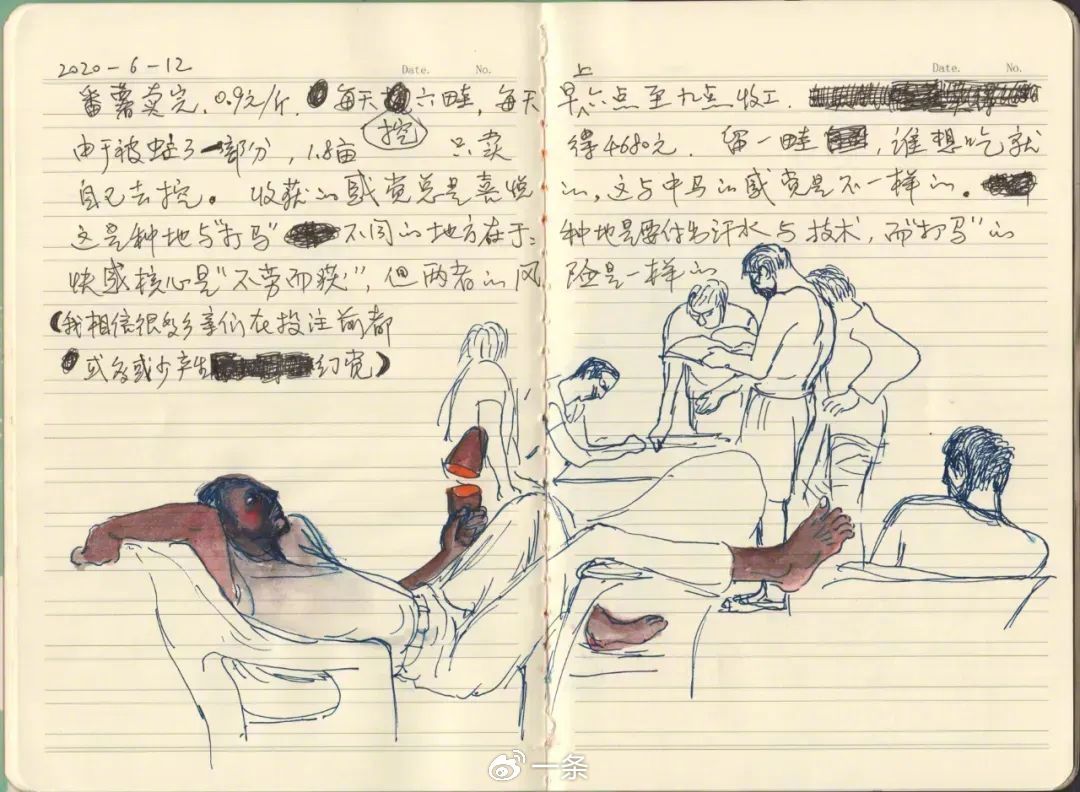 2020-6-12 Date. No. Date. No.
番薯卖完,0.9元/斤. 每天挖六畦,每天早上六点至九点收工.
由于被蛀了一部分,1.8亩 只卖得4680元. 留一畦,谁想吃就
自己去挖。收获的感觉总是喜悦的,这与中马的感觉是不一样的。
这是种地与"打马"不同的地方在于:种地是要付出汗水与技术,而"打马"的
快感核心是"不劳而获",但两者的风险是一样的
(我相信很多乡亲们在投注前都
或多或少产生幻觉)
一条